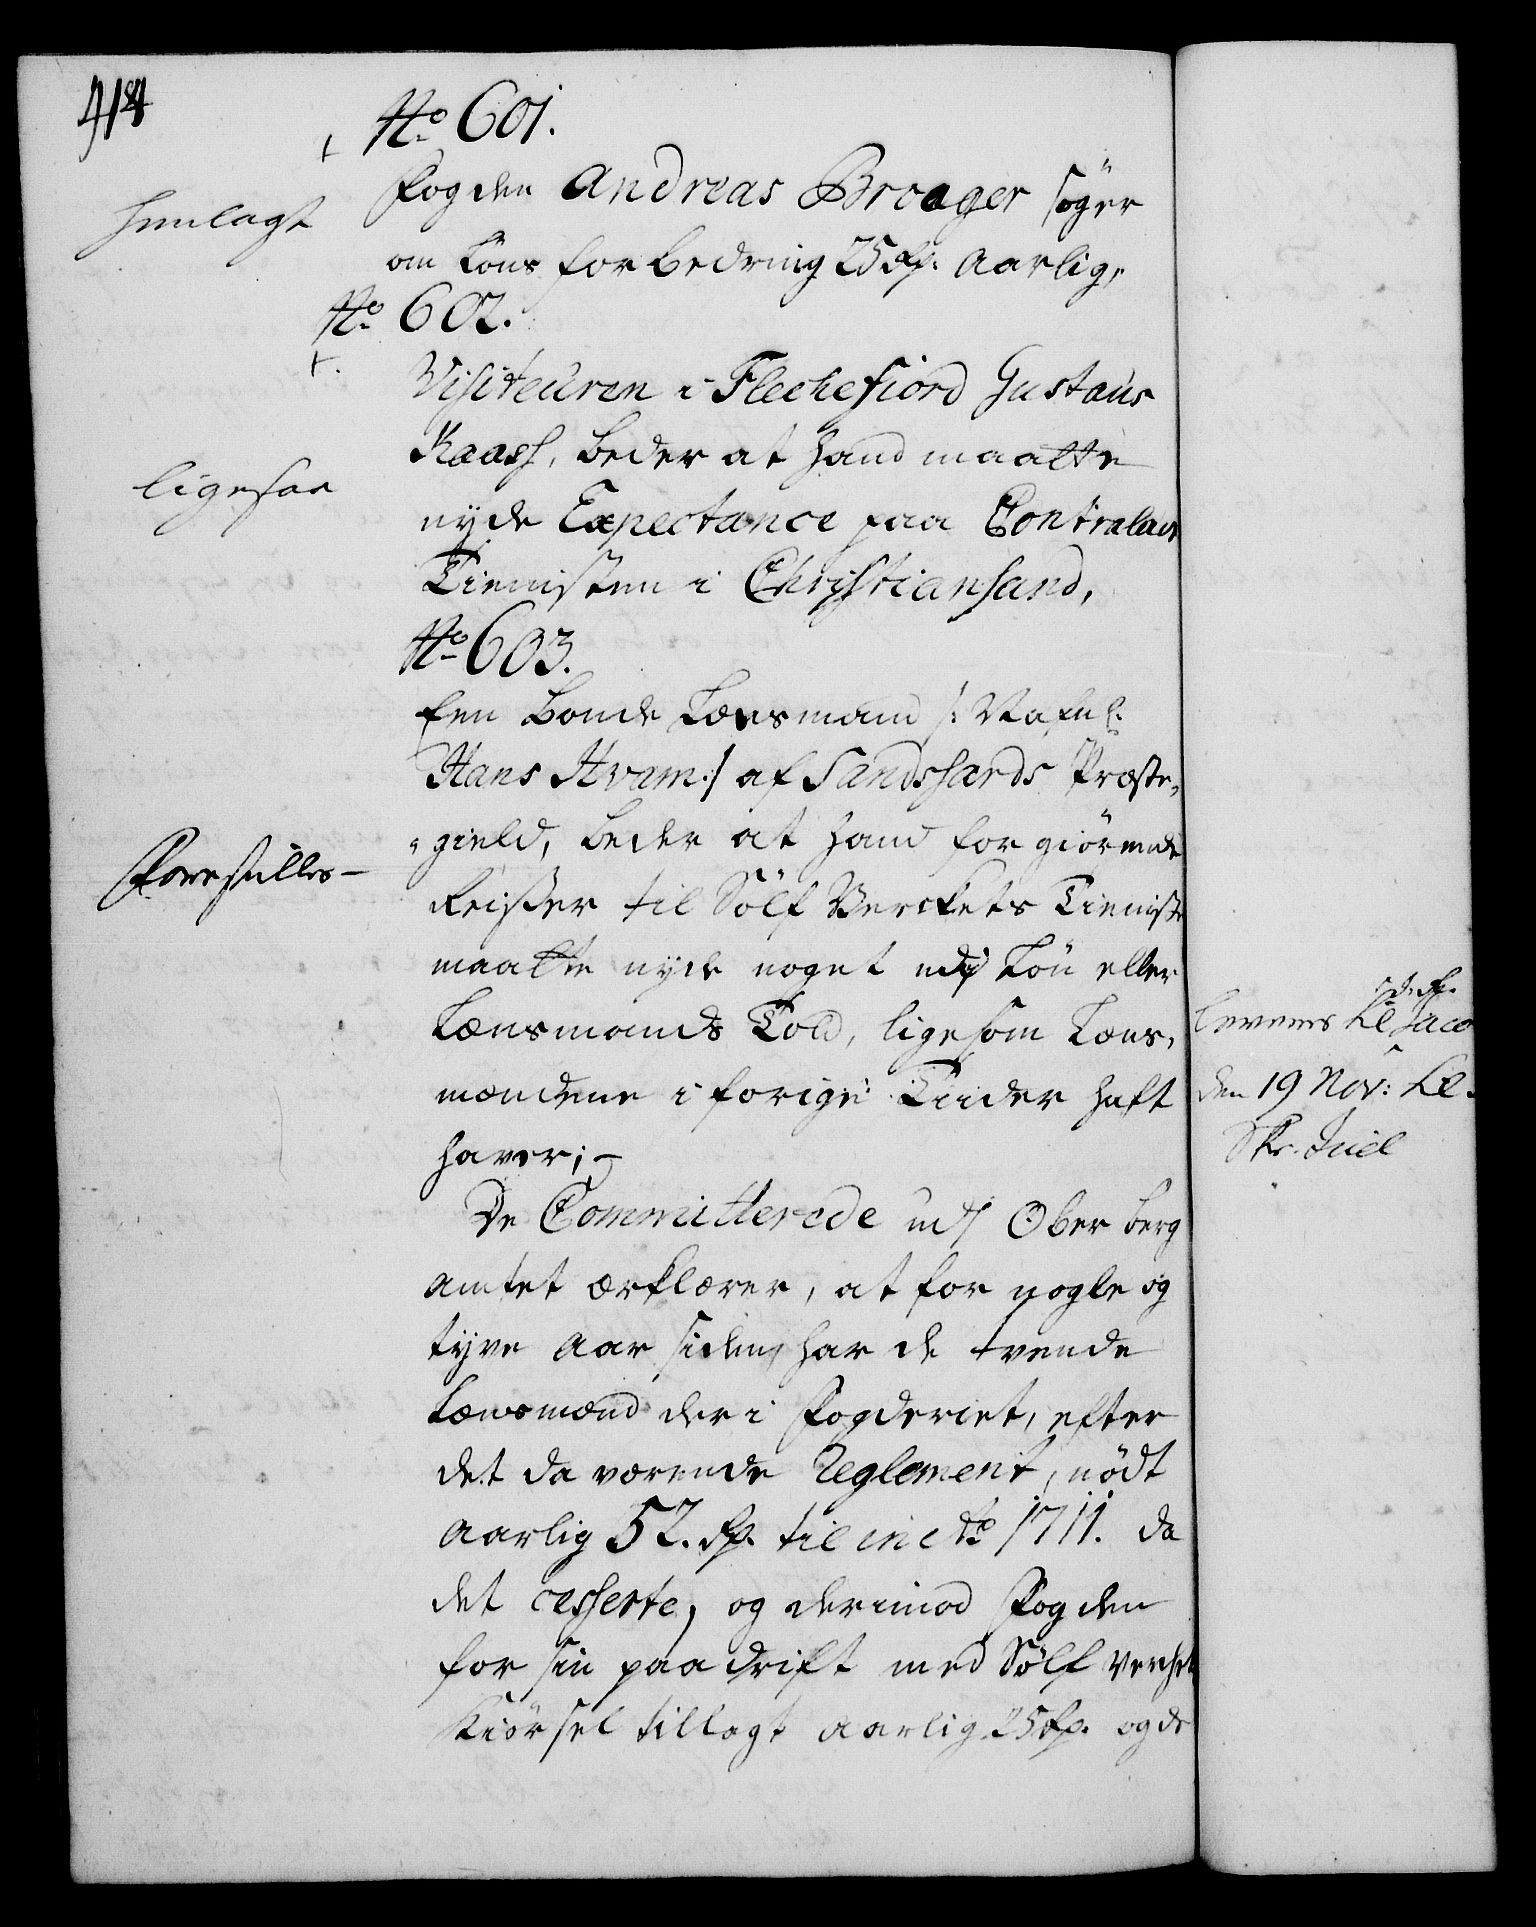 414
No 601.
Henlagt
Fogden Andreas Broager søger
om Løns forbedring 25 Rd. Aarlig,
No 602.
Visiteuren i Flechefiord Gustaus
Kaass, beder at hand maatte
ligesaa
nyde Expectance paa Contraleur
Tienisten i Christiansand,
No 603.
Een Bonde Lænsmand /: Nafnl.
Hans Hvam :/ af Sandshærds Præste-
-gield, beder at hand for giørende
Forestilles
Reisser til Sølf Verckets Tieniste
maatte nyde noget udj Løn eller
Lænsmands Told, ligesom Læns-
mændene i forige Tiider haft
haver;
De Committerede udj Ober berg
amtet ærklærer, at for nogle og
tyve Aar siden, har de tvende
Lænsmænd der i Fogderiet, efter
det da værende Reglement, nødt
Aarlig 52. Rd. til inct. 1711. da
det cesserte, og derimod Fogden
for sin paadrift med Sølf Verckets
Kiørsel tillagt Aarlig 25 Rd. og de
den 19 Nov:
Skr. Juel